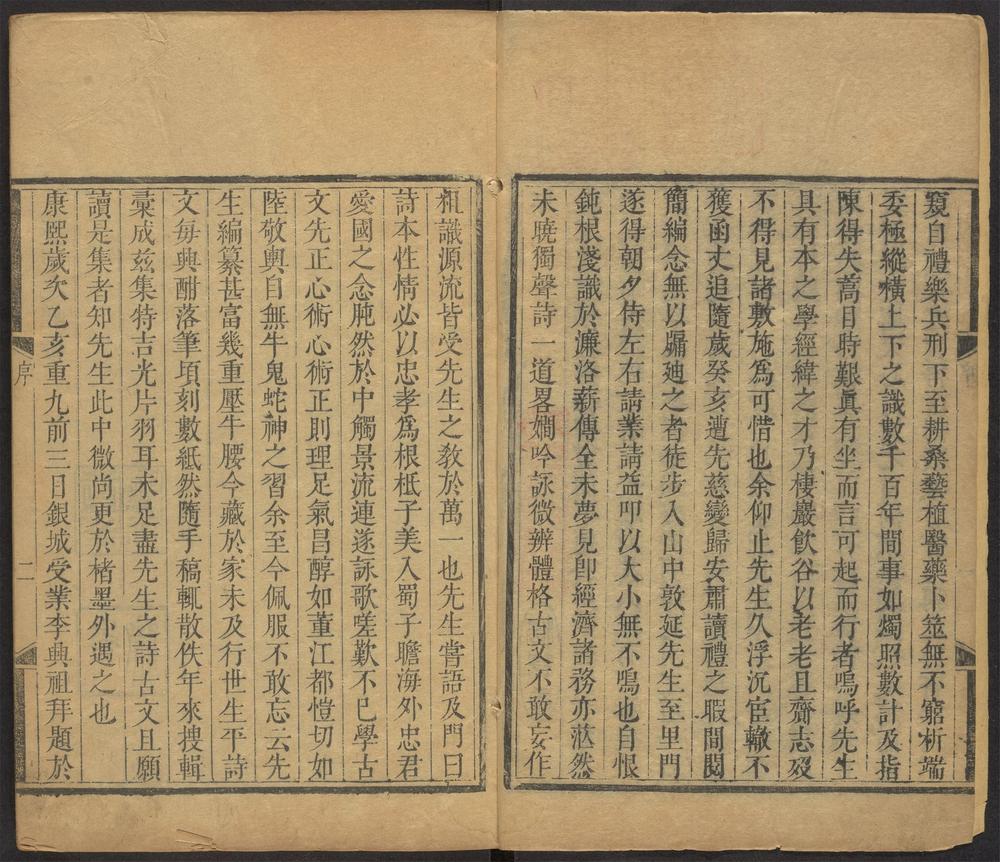 窺自禮樂兵刑下至耕桑藝植醫藥卜筮無不窮析端
委極縱橫上下之識數千百年間事如燭照數計及指
陳得失蒿目時艱眞有坐而言可起而行者嗚呼先生
具有本之學經緯之才乃棲巖飲谷以老老且齎志歿
不得見諸敷施爲可惜也余仰止先生久浮沉宦轍不
獲函丈追隨歲癸亥遭先慈變歸安肅讀禮之暇間閱
簡編念無以牖廸之者徒步入山中敦延先生至里門
遂得朝夕侍左右請業請益叩以大小無不鳴也自恨
鈍根淺識於濂洛薪傳全未夢見卽經濟諸務亦茫然
未曉獨聲詩一道畧嫺吟詠微辨體格古文不敢妄作
粗識源流皆受先生之敎於萬一也先生嘗語及門曰
詩本性情必以忠孝爲根柢子美入蜀子瞻海外忠君
愛國之念肫然於中觸景流連遂詠歌嗟歎不已學古
文先正心術心術正則理足氣昌醇如董江都愷切如
陸敬輿自無牛鬼蛇神之習余至今佩服不敢忘云先
生編纂甚富幾重壓牛腰今藏於家未及行世生平詩
文每興酣落筆頃刻數紙然隨手稿輒散佚年來搜輯
彙成茲集特吉光片羽耳未足盡先生之詩古文且願
讀是集者知先生此中微尚更於楮墨外遇之也
康熙歲次乙亥重九前三日銀城受業李興祖拜題於
序
二